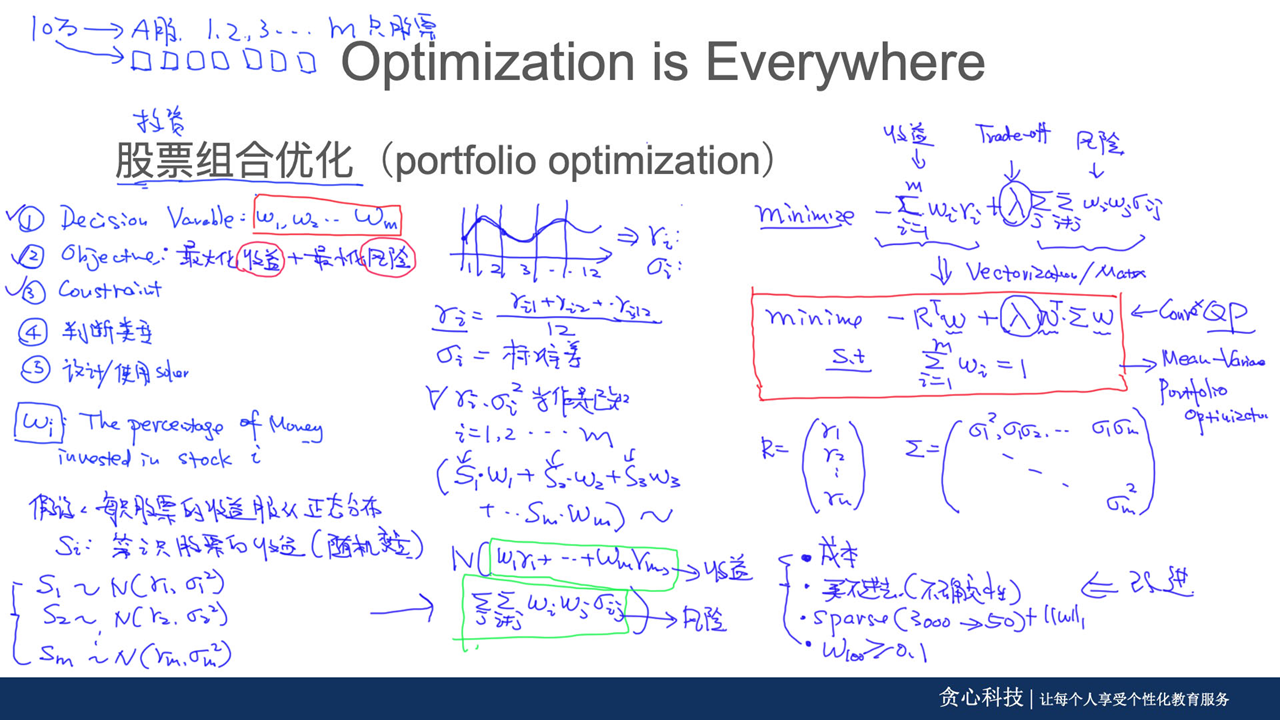 10万 → A股. 1, 2, 3 ... m 只股票
Optimization is Everywhere
投资
股票组合优化（portfolio optimization）
① Decision Varable: w₁, w₂ ... wm
② Objective: 最大化 收益 + 最小化 风险
③ Constraint
④ 判断类型
⑤ 设计/使用solver
wi : The percentage of Money
invested in stock i
假设: 每只股票的收益服从正态分布
Si: 第i只股票的收益(随机变量)
S₁ ~ N(r₁, σ₁²)
S₂ ~ N(r₂, σ₂²)
⋮
Sm ~ N(rm, σm²)
1 2 3 ... 12
⇒ ri:
σi:
ri = (ri1 + ri2 + ... ri12) / 12
σi = 标准差
∀ ri, σi² 当作是已知
i = 1, 2 ... m
(S₁·w₁ + S₂·w₂ + S₃w₃
+ ... Sm·wm) ~
N( w₁r₁ + ... + wmrm, → 收益
Σj Σi≠j wi wj σij ) → 风险
收益 Trade-off 风险
minimize - Σ(i=1..m) wi ri + λ Σj Σi≠j wi wj σij
⇓ Vectorization/Matrix
minime - Rᵀw + λ wᵀ·Σw ← Convex QP
s.t Σ(i=1..m) wi = 1 → Mean-Variance
Portfolio
Optimization
R = (r₁ r₂ ⋮ rm) Σ = (σ₁², σ₁σ₂, ... σ₁σm ... σm²)
· 成本
· (不确定性) ⇐ 改进
· sparse (3000 → 50) + ||w||₁
· w₁₀₀ ≥ 0.1
贪心科技 | 让每个人享受个性化教育服务